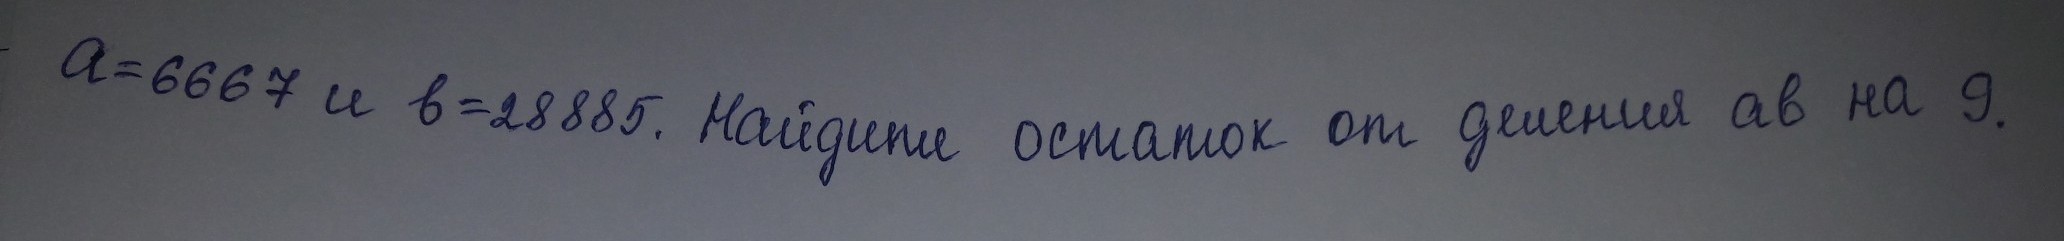 a=6667 и в=28885. Найдите остаток от деления ав на 9.